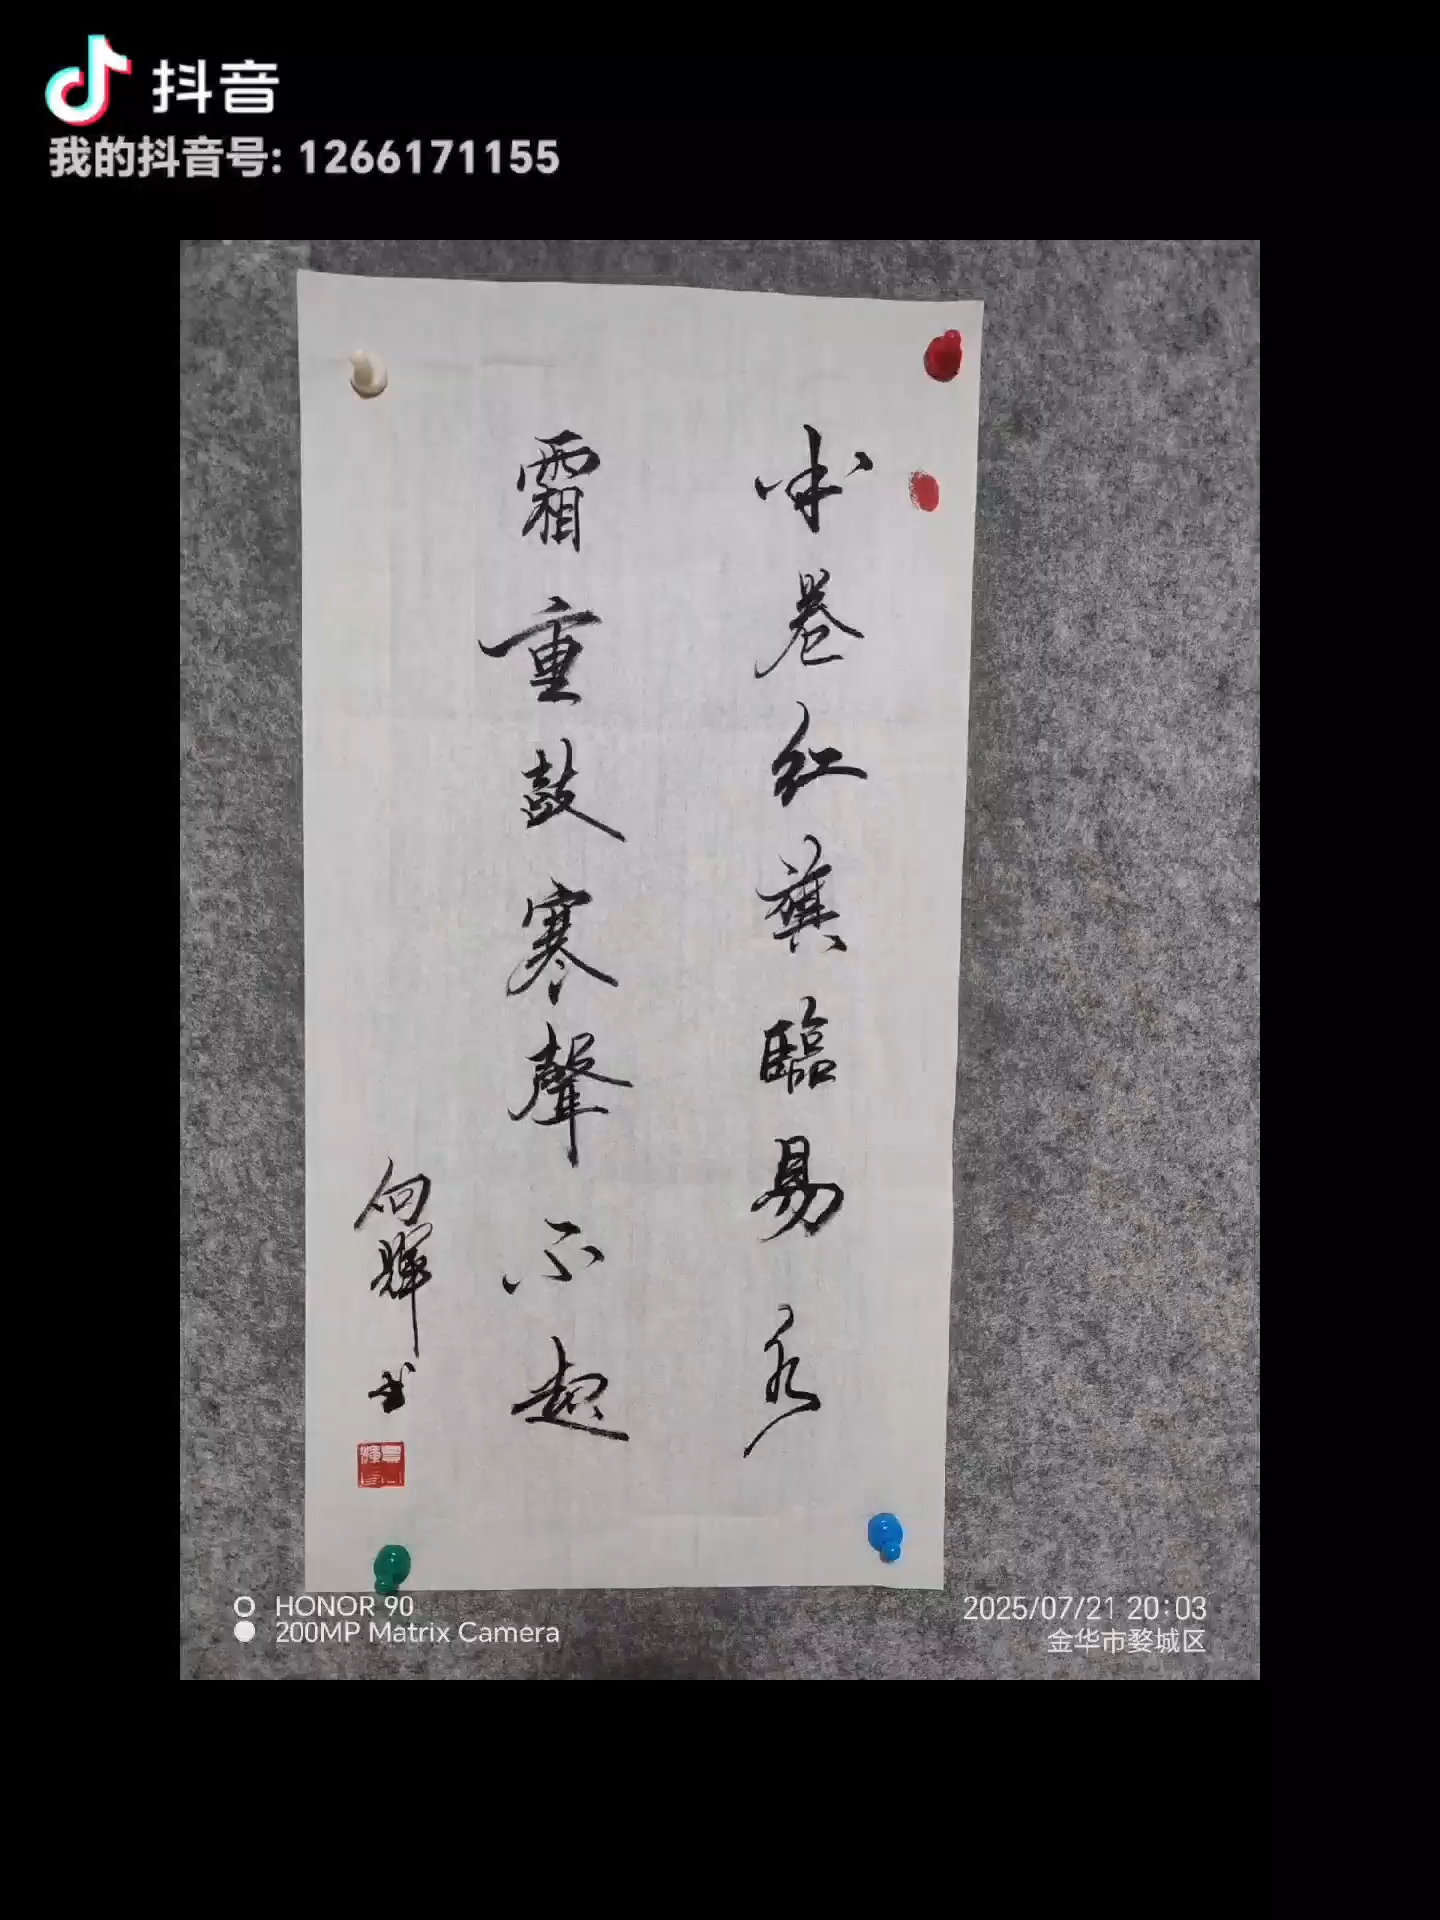 抖音
我的抖音号: 1266171155
半卷红旗臨易水
霜重鼓寒聲不起
向輝书
HONOR 90
200MP Matrix Camera
2025/07/21 20:03
金华市婺城区